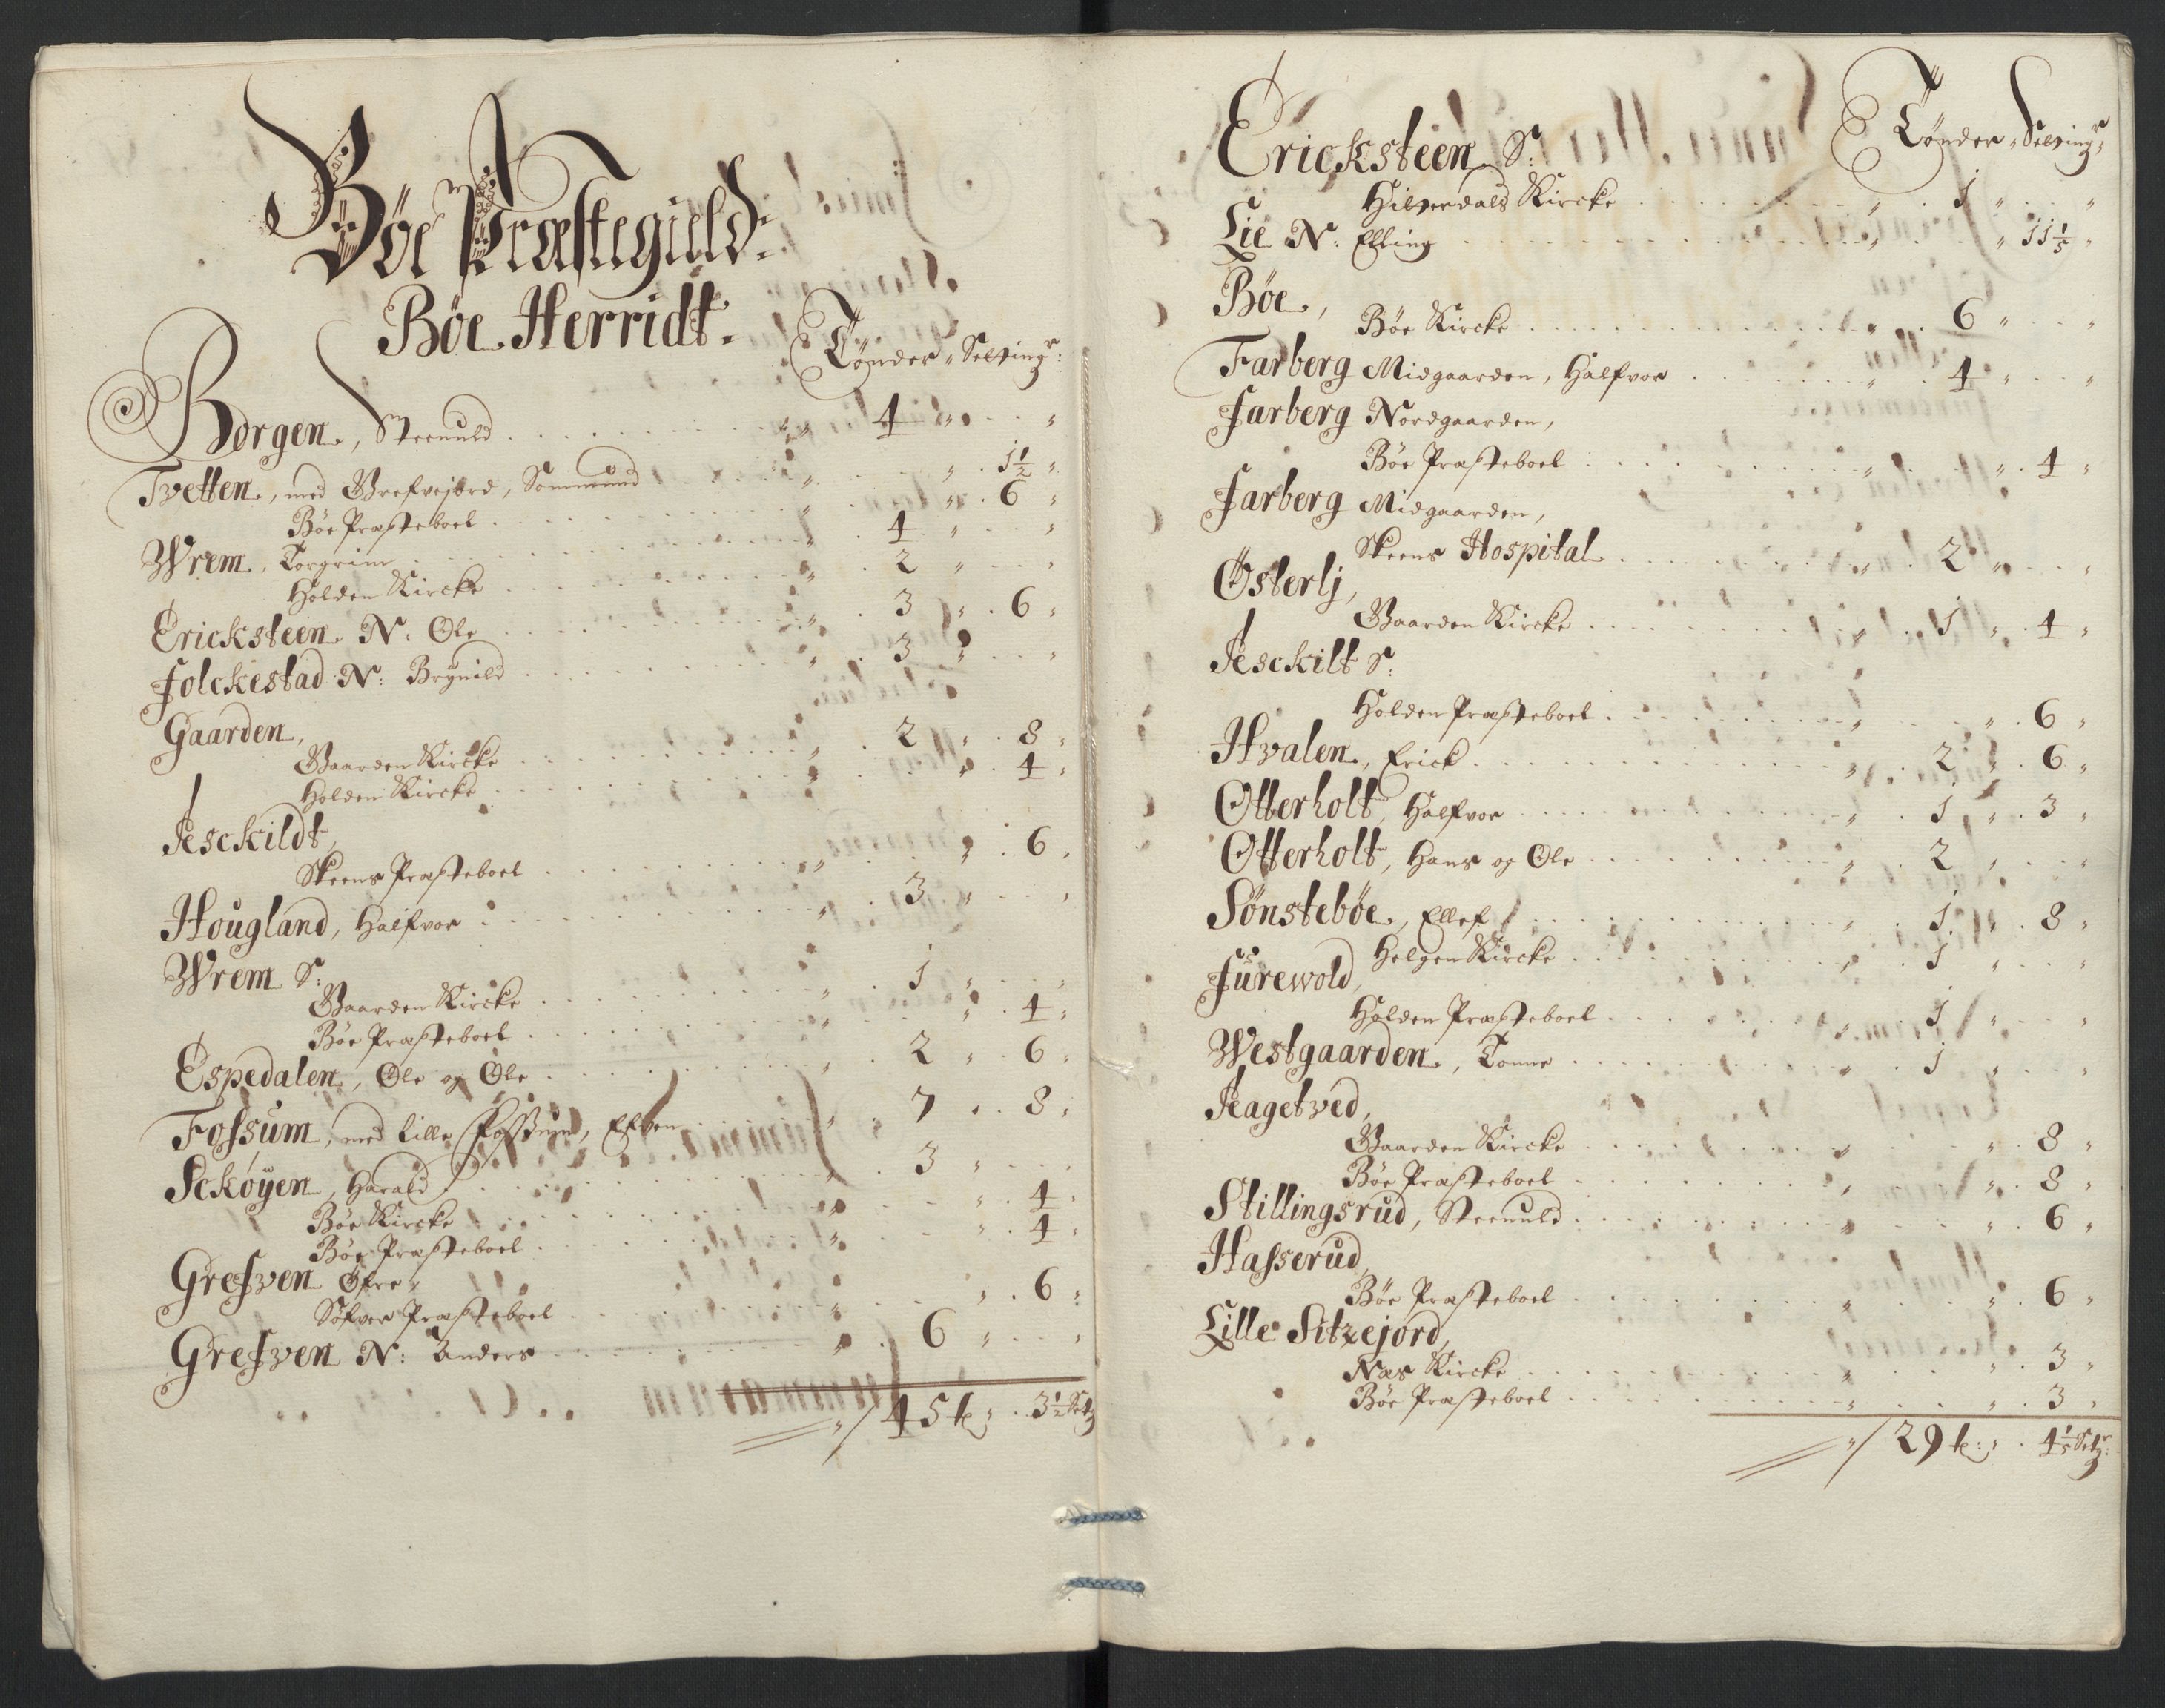 Böe Præstegield:
Böe Herridt.
Tönder " Setting:
Borgen, Steenuld " 4 " "
Tvetten, med Grefvejord, Sommund " " 1 1/2 "
Böe Præsteboel " " 6 "
Wrem, Torgrim " 4 " "
Holden Kircke " 2 " "
Ericksteen N: Ole " 3 " 6 "
Folckestad N: Brynild " 3 " "
Gaarden,
Gaarden Kircke " 2 " 8 "
Holden Kircke " " 4 "
Jesckildt,
Skeens Præsteboel " " 6 "
Hougland, Halfvor " 3 " "
Wrem S:
Gaarden Kircke " 1 " "
Böe Præsteboel " " 4 "
Espedalen, Ole og Ole " 2 " 6 "
Fossum, med Lille Fossum, " 7 " 8 "
Sckøyen, Harald " 3 " "
Böe Kircke " " 4 "
Böe Præsteboel " " 4 "
Grefven Öfre,
Præsteboel " " 6 "
Grefven N: Anders " 6 " "
" / 45 t " 3 1/2 Set
Ericksteen S: Tönder " Setting:
Hitterdals Kircke " 1 " "
Lie N: Elling " " 11 1/5 "
Böe,
Böe Kircke " 6 " "
Farberg Midgaarden, Halfvor " 4 " "
Farberg Nordgaarden,
Böe Præsteboel " " 4 "
Farberg Midgaarden,
Skeens Hospital " 2 " "
Österlj,
Gaarden Kircke " 1 " 4 "
Jesckilt S:
Holden Præsteboel " " 6 "
Hvalen, Erick " 2 " 6 "
Otterholt, Halfvor " 1 " 3 "
Otterholt, Hans og Ole " 2 " "
Sönstebøe, Ellef " 1 " 8 "
Helgen Kircke " 1 " "
Fürewold,
Holden Præsteboel " 1 " "
Westgaarden, Tonne " 1 " "
Jeagetved,
Gaarden Kircke " " 8 "
Böe Præsteboel " " 8 "
Stillingsrud, Steenuld " " 6 "
Hasserud,
Böe Præsteboel " " 6 "
Lille Sitzejord,
Næs Kircke " " 3 "
Böe Præsteboel " " 3 "
" / 29 t: " 4 1/5 Setr: